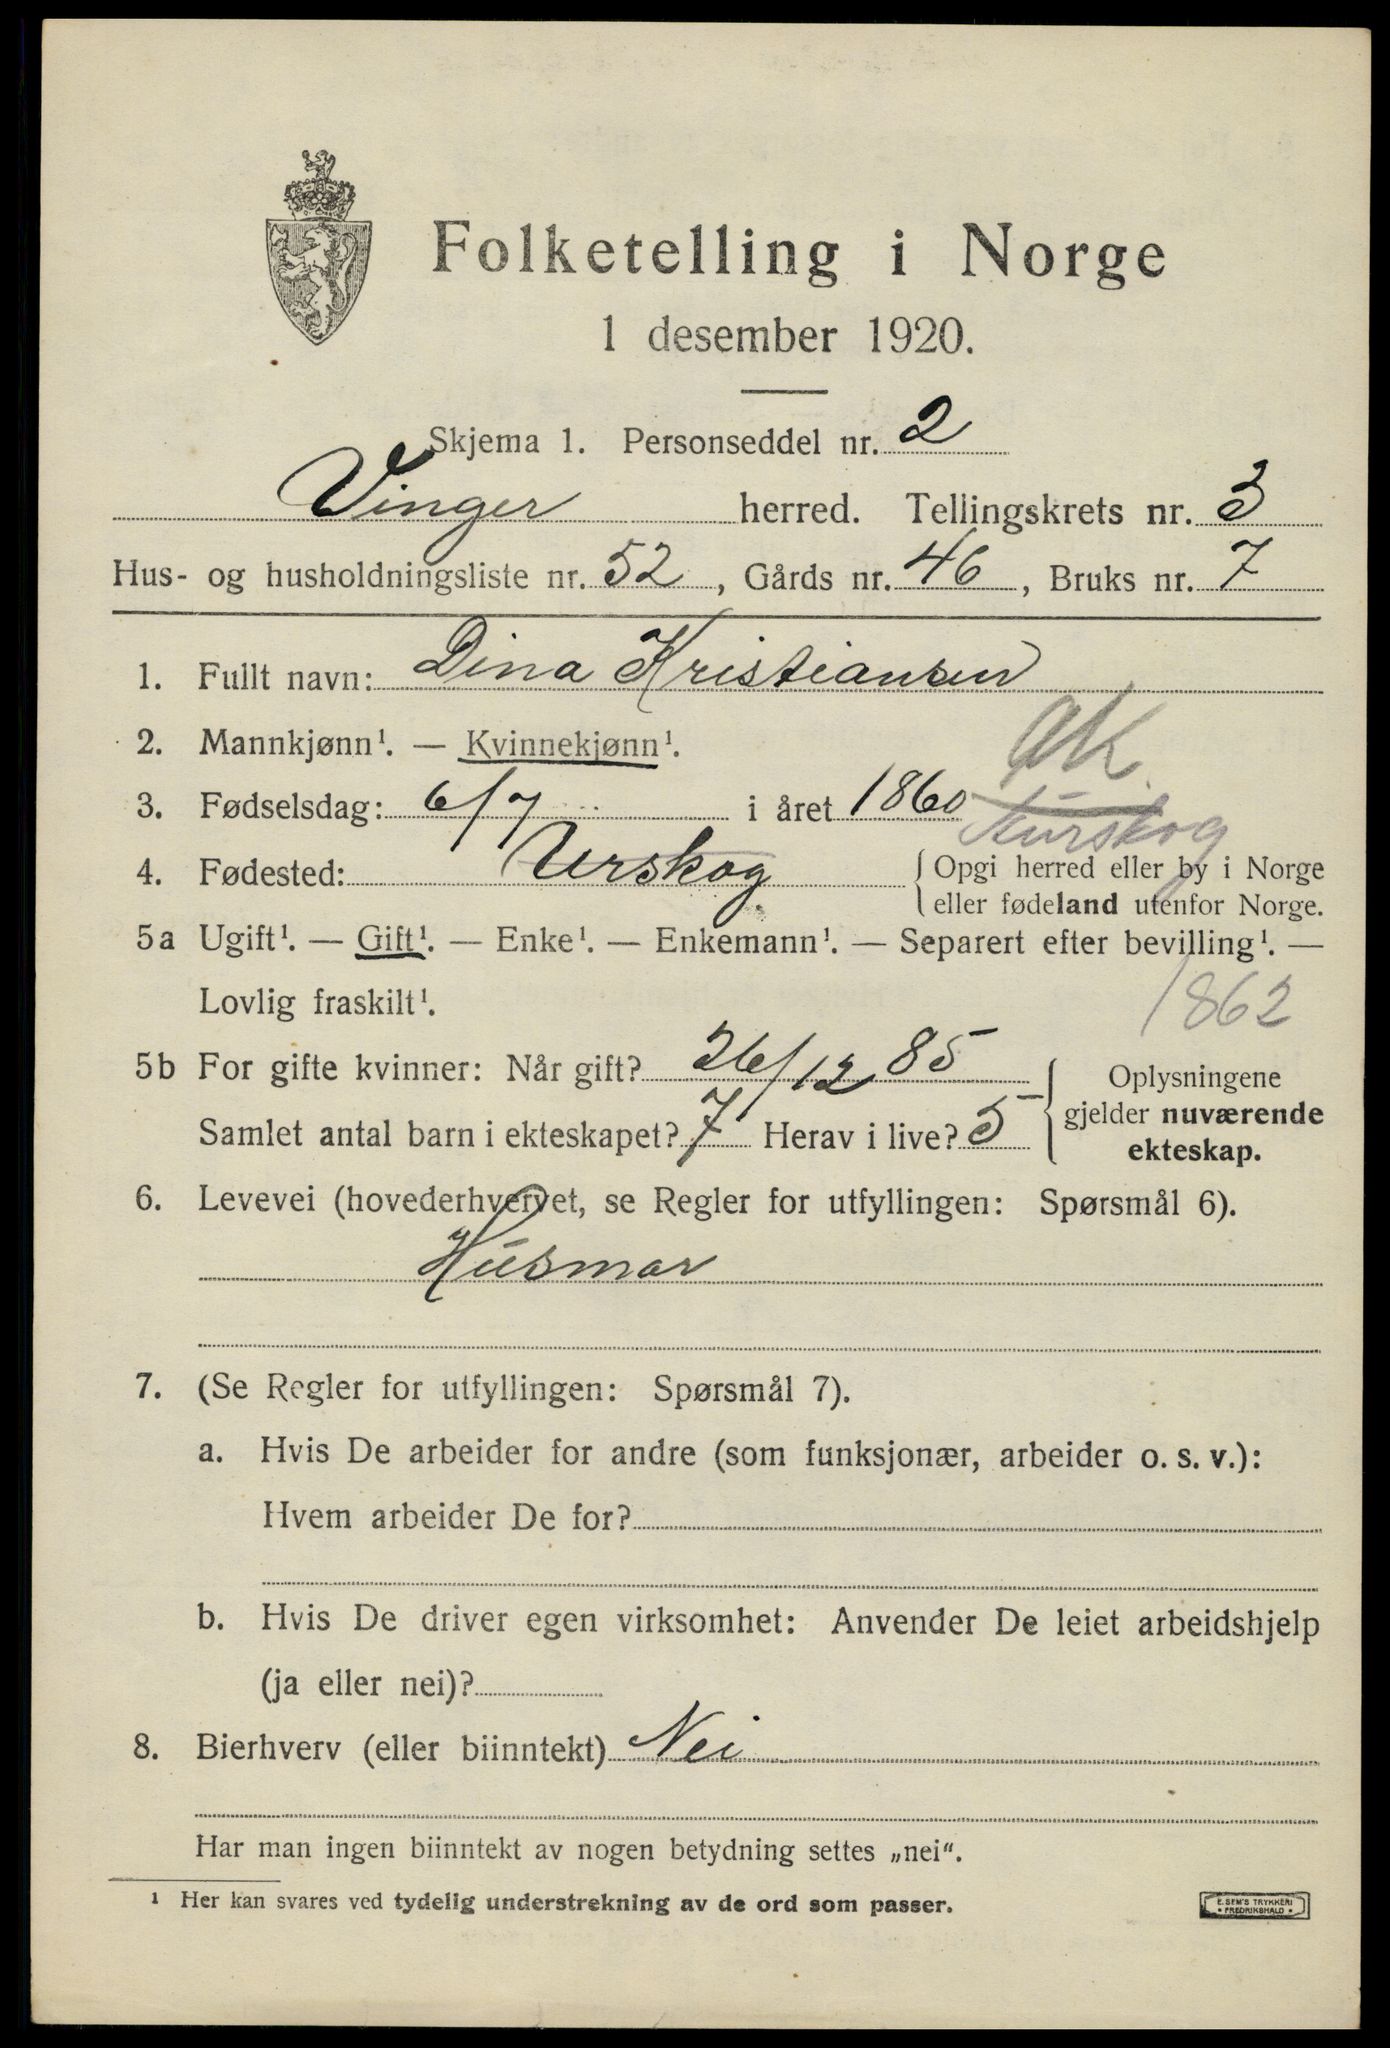 Folketelling i Norge
1 desember 1920.
Skjema 1. Personseddel nr. 2
Vinger herred. Tellingskrets nr. 3
Hus- og husholdningsliste nr. 52, Gårds nr. 46, Bruks nr. 7
1. Fullt navn: Dina Kristiansen
AK
2. Mannkjønn¹. — Kvinnekjønn¹.
3. Fødselsdag: 6/7 i året 1860
Aurskog
4. Fødested: Urskog { Opgi herred eller by i Norge
eller fødeland utenfor Norge.
5a Ugift¹. — Gift¹. — Enke¹. — Enkemann¹. — Separert efter bevilling¹. —
Lovlig fraskilt¹.
1862
5b For gifte kvinner: Når gift? 26/12 85 { Oplysningene
Samlet antal barn i ekteskapet? 7 Herav i live? 5 gjelder nuværende
ekteskap.
6. Levevei (hovederhvervet, se Regler for utfyllingen: Spørsmål 6).
Husmor
7. (Se Regler for utfyllingen: Spørsmål 7).
a. Hvis De arbeider for andre (som funksjonær, arbeider o. s. v.):
Hvem arbeider De for?
b. Hvis De driver egen virksomhet: Anvender De leiet arbeidshjelp
(ja eller nei)?
8. Bierhverv (eller biinntekt) Nei
Har man ingen biinntekt av nogen betydning settes „nei“.
¹ Her kan svares ved tydelig understrekning av de ord som passer.
E. SEM'S TRYKKERI
• FREDRIKSHALD •